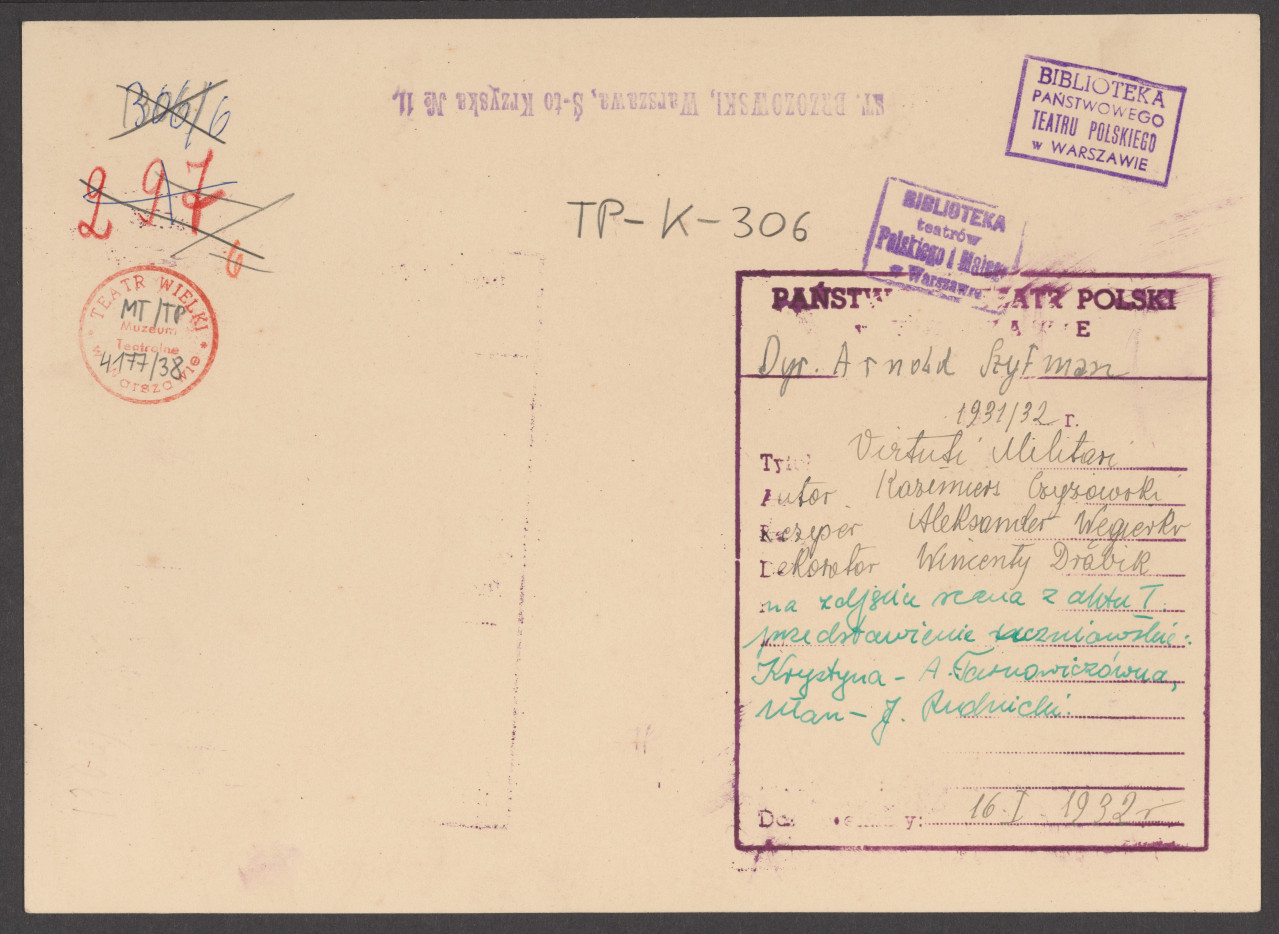 1306/6
ST. BRZOZOWSKI, Warszawa, Ś-to Krzyska № 11.
BIBLIOTEKA
PAŃSTWOWEGO
TEATRU POLSKIEGO
w WARSZAWIE
297
6
TP-K-306
BIBLIOTEKA
teatrów
Polskiego i Małego
w Warszawie
TEATR WIELKI
MT/TP
Muzeum
Teatralne
4177/38
w Warszawie
PAŃSTW TEATR POLSKI
Dyr. Arnold Szyfman
1931/32 r.
Tytuł Virtuti Militari
Autor Kazimierz Czyżowski
Reżyser Aleksander Węgierko
Dekorator Wincenty Drabik
na zdjęciu scena z aktu I.
przedstawienie uczniowskie:
Krystyna - A. Tarnowiczówna,
ułan - J. Rudnicki.
16.I 1932 r